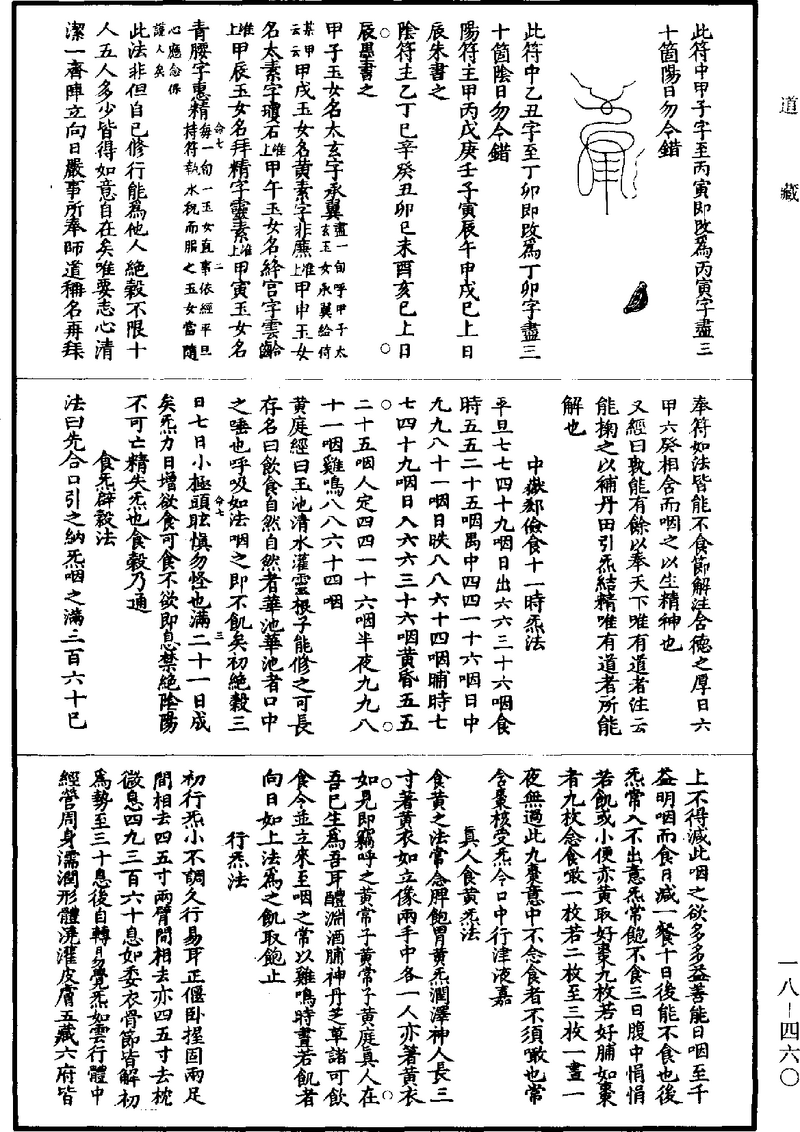 道藏
此符中甲子字至丙寅即改為丙寅字盡三
十箇陽日勿令錯
此符中乙丑字至丁卯即改為丁卯字盡三
十箇陰日勿令錯
陽符主甲丙戊庚壬子寅辰午申戌已上日
辰朱書之
陰符主乙丁巳辛癸丑卯巳未酉亥已上日
辰墨書之
甲子玉女名太玄字承翼盡一旬呼甲子太玄玉女承翼給侍
某甲云云甲戌玉女名黃素字非廉准上甲申玉女
名太素字瓊石准上甲午玉女名絳宮字雲齡
准上甲辰玉女名拜精字靈素准上甲寅玉女名
青腰字惠精每一旬一玉女直事依經平旦持符執水祝而服之玉女當隨
心應念保護人矣
此法非但自已修行能為他人絕穀不限十
人五人多少皆得如意自在矣唯要志心清
潔一齊陣立向日嚴事所奉師道稱名再拜
奉符如法皆能不食節解注含德之厚日六
甲六癸相含而咽之以生精神也
又經曰孰能有餘以奉天下唯有道者注云
能掬之以補丹田引炁結精唯有道者所能
解也
中嶽郄儉食十一時炁法
平旦七七四十九咽日出六六三十六咽食
時五五二十五咽禺中四四一十六咽日中
九九八十一咽日昳八八六十四咽晡時七
七四十九咽日入六六三十六咽黃昏五五
二十五咽人定四四一十六咽半夜九九八
十一咽雞鳴八八六十四咽
黃庭經曰玉池清水灌靈根子能修之可長
存名曰飲食自然自然者華池華池者口中
之唾也呼吸如法咽之即不飢矣初絕穀三
日七日小極頭眩慎勿怪也滿二十一日成
矣炁力日增欲食可食不欲即息禁絕陰陽
不可亡精失炁也食穀乃通
食炁辟穀法
法曰先合口引之納炁咽之滿三百六十已
上不得減此咽之欲多多益善能日咽至千
益明咽而食日減一餐十日後能不食也後
炁常入不出意炁常飽不食三日腹中悁悁
若飢或小便赤黃取好棗九枚若好脯如棗
者九枚念食噉一枚若二枚至三枚一晝一
夜無過此九棗意中不念食者不須噉也常
含棗核受炁令口中行津液嘉
真人食黃炁法
食黃之法常念脾飽胃黃炁潤澤神人長三
寸著黃衣如立像兩手中各一人亦著黃衣
如見即竊呼之黃常子黃常子黃庭真人在
吾已生為吾耳醴淵酒脯神丹芝草諸可飲
食令並立來至咽之常以雞鳴時晝若飢者
向日如上法為之飢取飽止
行炁法
初行炁小不調久行易耳正偃卧捏固兩足
間相去四五寸兩臂間相去亦四五寸去枕
微息四九三百六十息如委衣骨節皆解初
為勢至三十息後自轉易覺炁如雲行體中
經營周身濡潤形體澆灌皮膚五藏六府皆
一八—四六〇